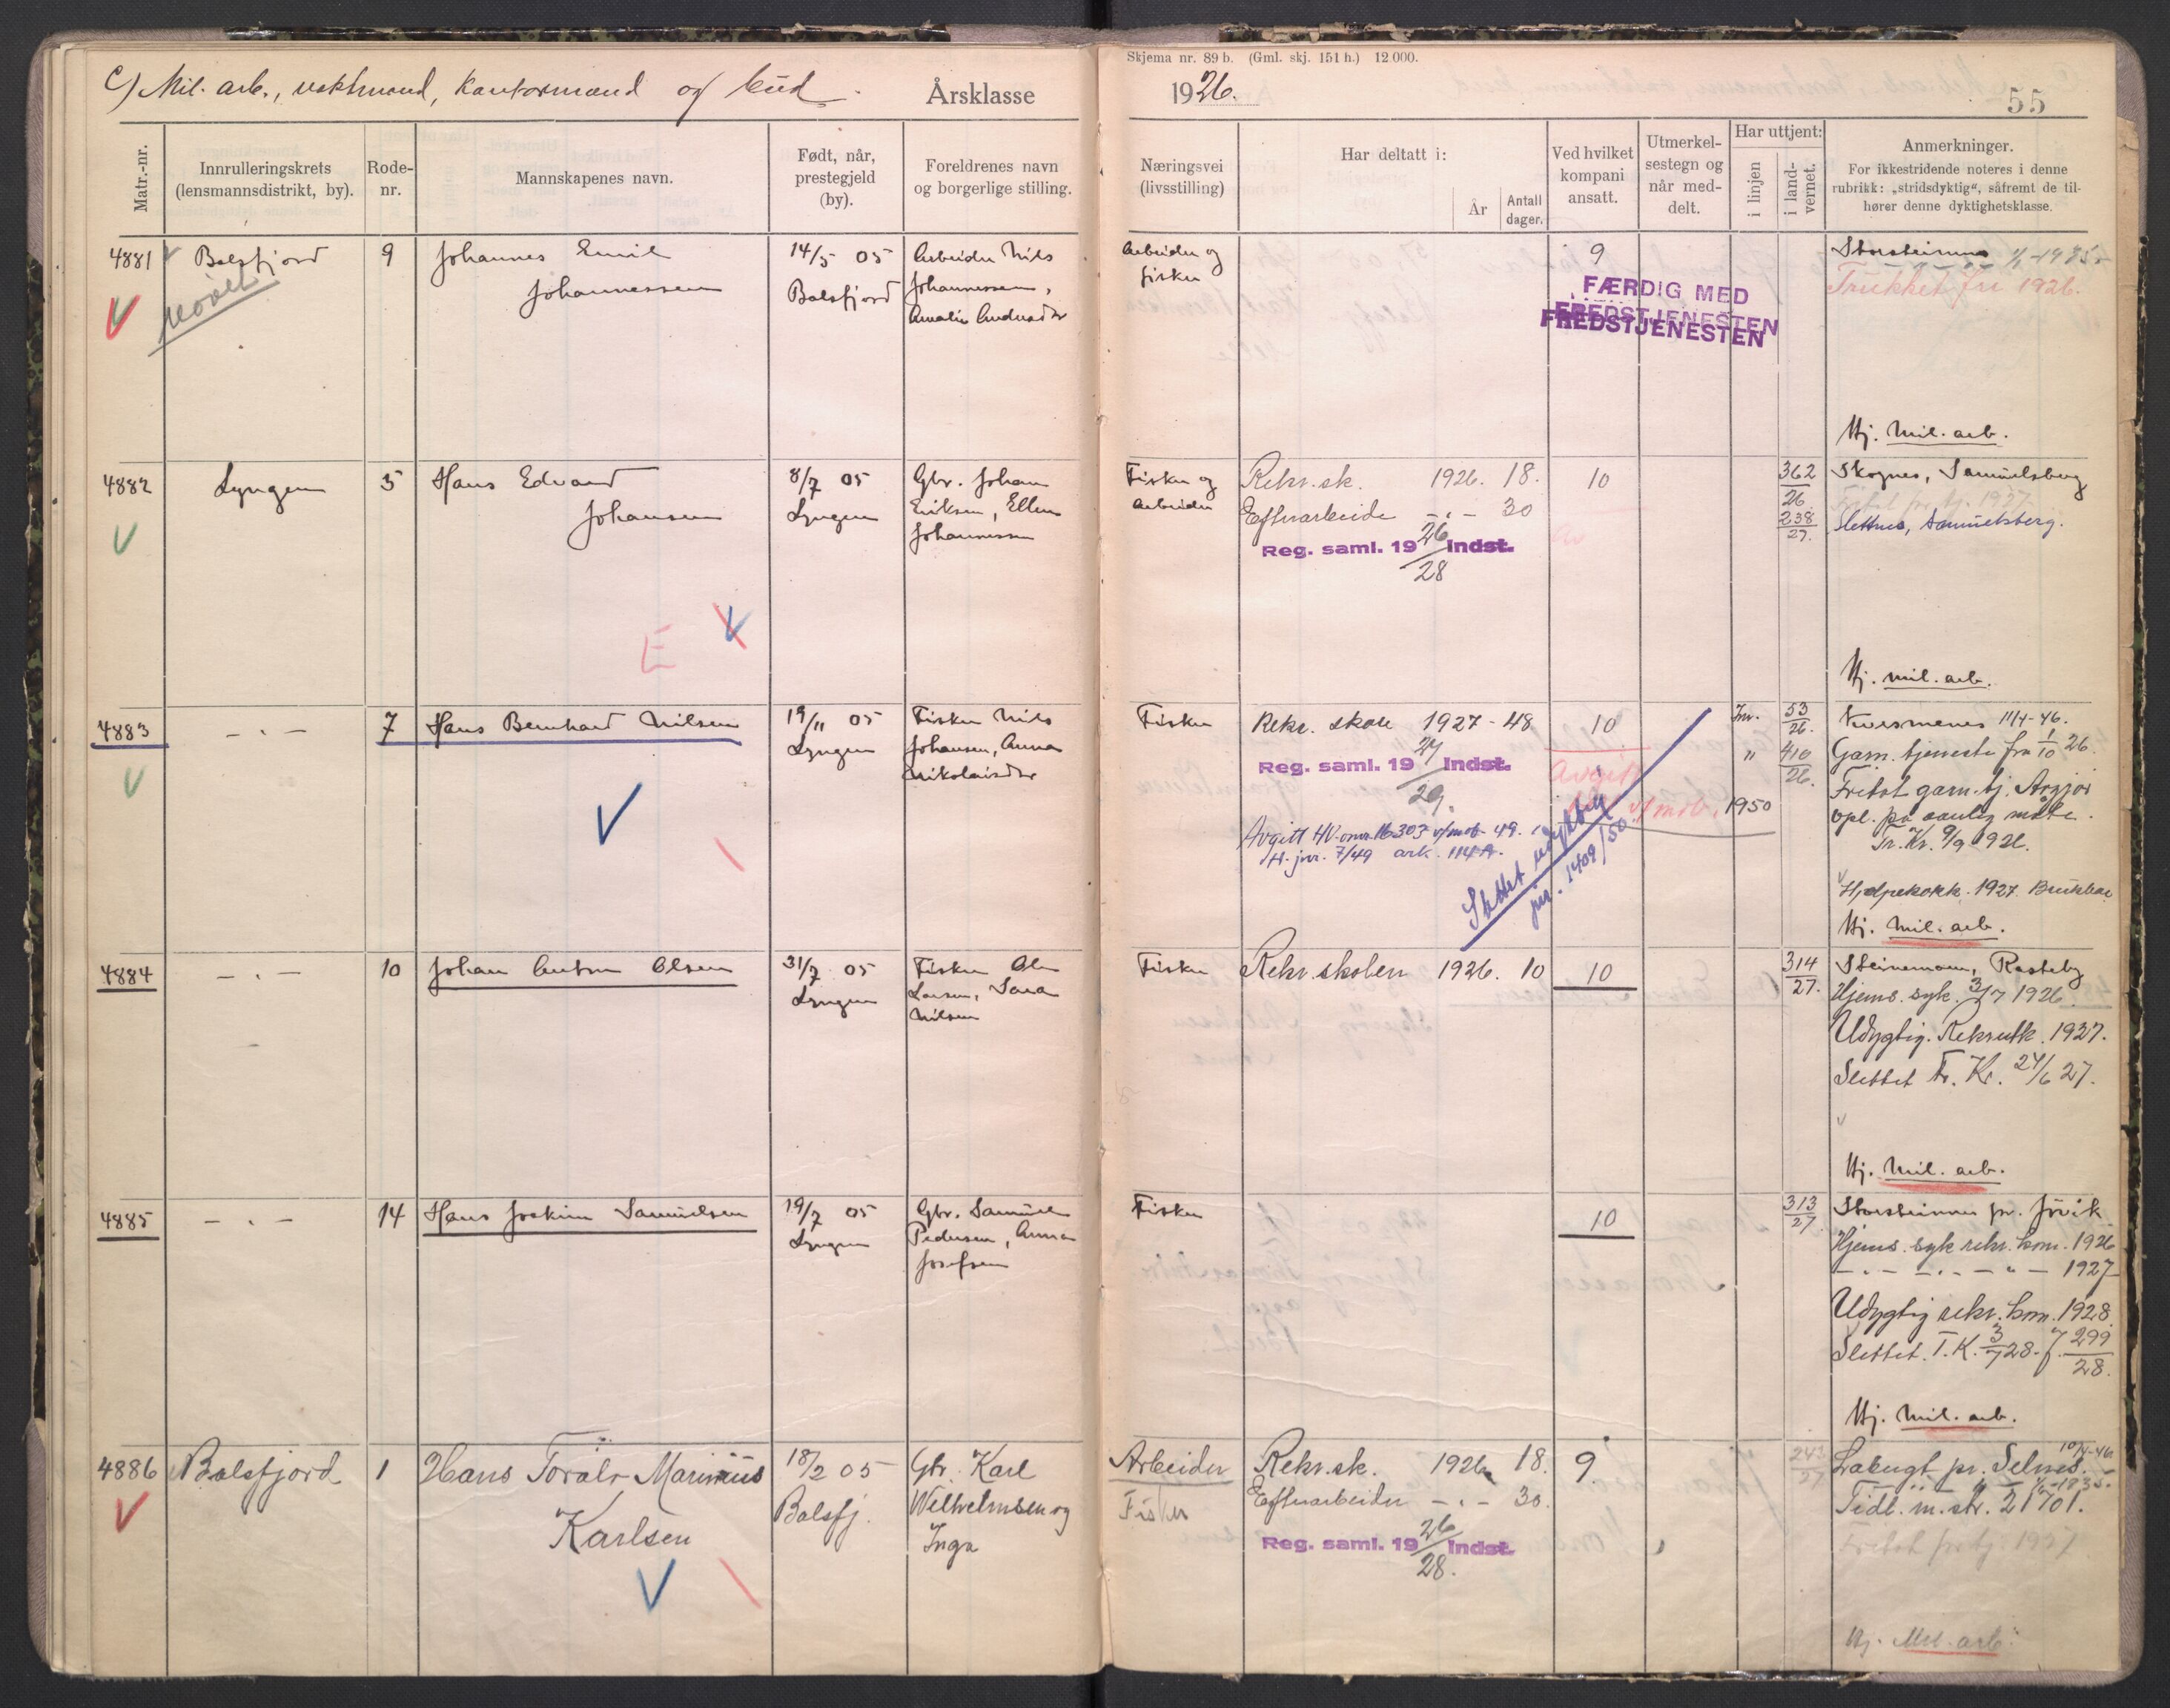 C) Mil. arb., vaktmænd, kontormænd og bud.
Årsklasse
Skjema nr. 89 b. (Gml. skj. 151 h.) 12 000.
1926.
55
Matr.-nr.
Innrulleringskrets (lensmannsdistrikt, by).
Rode-nr.
Mannskapenes navn.
Født, når, prestegjeld (by).
Foreldrenes navn og borgerlige stilling.
Næringsvei (livsstilling)
Har deltatt i:
År
Antall dager.
Ved hvilket kompani ansatt.
Utmerkelsestegn og når meddelt.
Har uttjent:
i linjen
i landvernet.
Anmerkninger.
For ikkestridende noteres i denne rubrikk: „stridsdyktig“, såfremt de tilhører denne dyktighetsklasse.
4881 Balsfjord 9 Johannes Emil
Johannessen
14/5 05
Balsfjord
Arbeider Nils
Johannessen,
Amalie
Arbeider og
fisker
9
FÆRDIG MED
FREDSTJENESTEN
FREDSTJENESTEN
Storsteinnes 1/1-1935
Trukket fri 1926.
Hj. Mil. arb.
4882 Lyngen 5 Hans Edvard
Johansen
8/7 05
Lyngen
Gbr. Johan
Eriksen, Ellen
Johannessen
Fisker og
arbeider
Rekr.sk. 1926. 18.
Efterarbeide -"- 30
Reg. saml. 19 26/28 Indst.
10
362/26
238/27.
Skognes, Samuelsberg
Fritat for tj. 1937
Slettnes, Samuelsberg.
E
Hj. mil. arb.
4883 -"- 7 Hans Bernhard Nilsen
19/11 05
Lyngen
Fisker Nils
Johansen, Anna
Nikolaisdtr
Fisker
Rekr. skole 1927 - 48
Reg. saml. 19 27/29. Indst.
Avgitt HV-omr. 16303 v/mob. 49.
H. jnr. 7/49 ark. 114A.
10
Avgitt
v/mob. 1950
Slettet udyktig
jnr. 1409/50
Inr. 53/26.
" 410/26.
11/4-46.
Garn. tjeneste fra 1/10 26.
Fritat garn. tj. Avgjør
opl. på vanlig måte.
Tr. Kr. 9/9 1926.
Hjelpekokk 1927. Brukbar
Hj. Mil. arb.
4884 -"- 10 Johan Anton Olsen
31/7 05
Lyngen
Fisker Ole
Larsen, Sara
Nilsen
Fisker
Rekr.skolen 1926. 10
10
314/27.
Steinemoen, Rasteby
Hjems. syk. 3/7 1926.
Udygtig. Rekrutk. 1927.
Slettet Tr. Kr. 24/6 27.
Hj. Mil. arb.
4885 -"- 14 Hans Joakim Samuelsen
19/7 05
Lyngen
Gbr. Samuel
Pedersen, Anna
Josefsen
Fisker
10
313/27
Storsteinnes pr. Jövik
Hjems. syk rekr. kom. 1926
-"- -"- -"- 1927
Udygtig rekr. kom. 1928.
Slettet. T.K. 3/7 28. J. 299/28.
Hj. Mil. arb.
4886 Balsfjord 1 Hans Toralv Marinius
Karlsen
18/2 05
Balsfj.
Gbr. Karl
Wilhelmsen og
Inga
Arbeider
Fisker
Rekr.sk. 1926 18.
Efterarbeider -"- 30.
Reg. saml. 19 26/28. Indst.
9.
243/27
Laksvgt pr. Selnes.
10/4-46
Tidl. m. str. 21701.
Fritat for tj. 1937
Hj. Mil. arb.